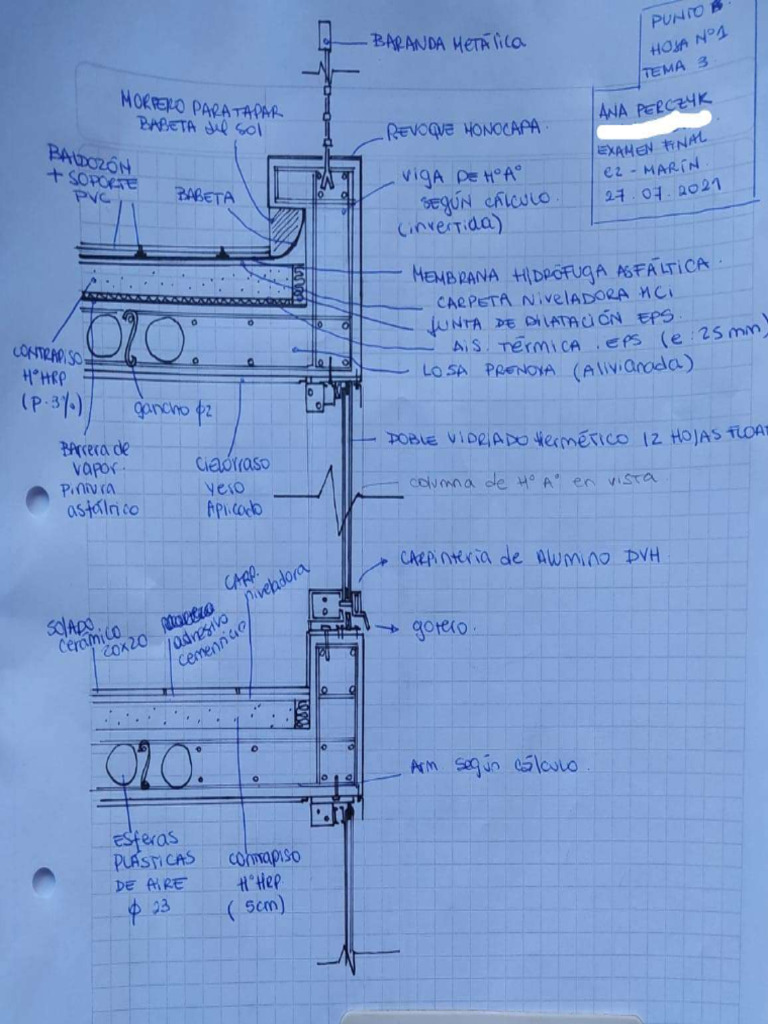 PUNTO B.
HOJA Nº1
TEMA 3
ANA PERCZYK
EXAMEN FINAL
C2 - MARÍN.
27.07.2021
BARANDA METÁlica
MORTERO PARA TAPAR
BABETA del SOl
REVOQUE MONOCAPA.
BALDOZÓN
+ SOPORTE
PVC
BABETA
VIGA DE HºAº
SEGÚN CÁLCULO.
(invertida)
MEMBRANA HIDRÓFUGA ASFÁLTICA.
CARPETA NIVELADORA MCi
JUNTA DE DILATACIÓN EPS.
AiS. TÉRMICA. EPS (e: 25mm)
LOSA PRENOVA (Alivianada)
CONTRAPISO
HºHRP
(P. 3%)
gancho φ2
Barrera de
vapor.
Pintura
asfáltica
Cielorraso
Yeso
Aplicado
DOBLE VIDRIADO Hermético 12 HOJAS FLOAT
columna de HºAº en vista.
CARPINTERÍA de AlUMINO DVH
gotero.
SOLADO
cerámico
20x20
adhesivo
cementicio
CARP.
niveladora
Arm según cálculo.
ESferas
PLÁSTICAS
DE AIRE
φ 23
Contrapiso
HºHRP
(5cm)